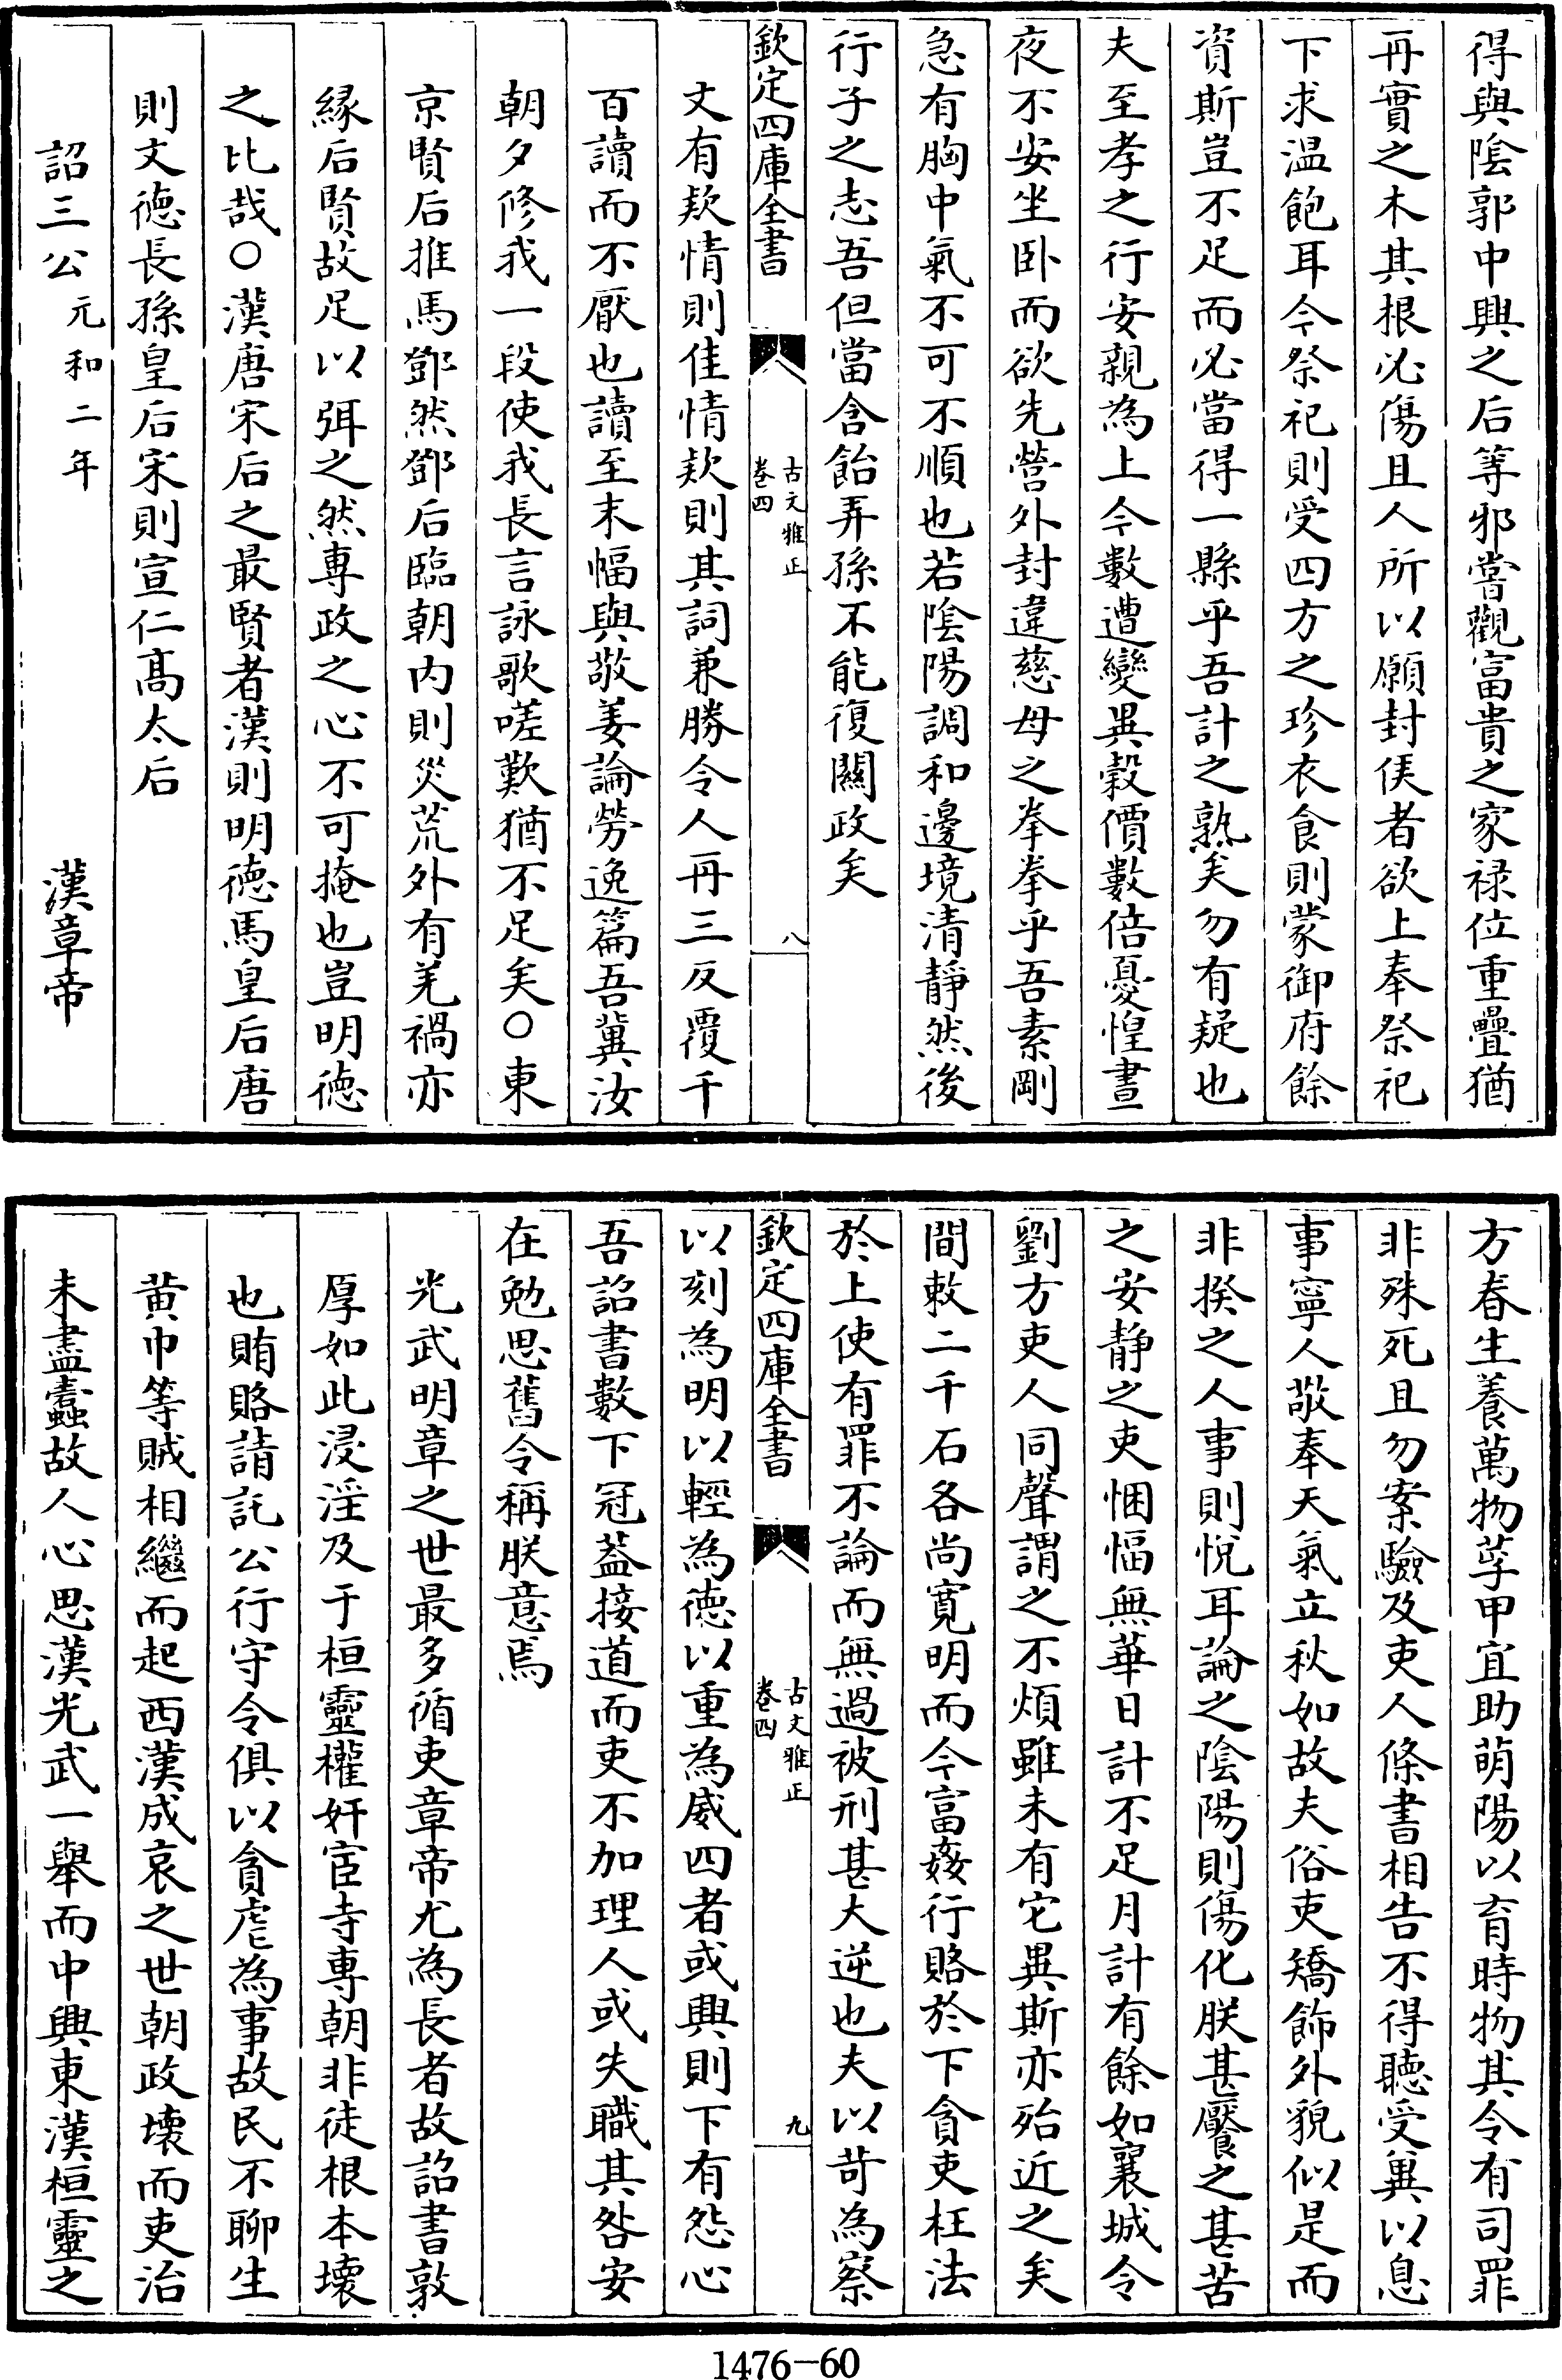 得與陰郭中興之后等邪嘗觀富貴之家禄位重疊猶
再實之木其根必傷且人所以願封侯者欲上奉祭祀
下求温飽耳今祭祀則受四方之珍衣食則蒙御府餘
資斯豈不足而必當得一縣乎吾計之熟矣勿有疑也
夫至孝之行安親為上今數遭變異穀價數倍憂惶晝
夜不安坐卧而欲先營外封違慈母之拳拳乎吾素剛
急有胸中氣不可不順也若陰陽調和邊境清靜然後
行子之志吾但當含飴弄孫不能復關政矣
欽定四庫全書
古文雅正
卷四
八
文有欵情則佳情欵則其詞兼勝令人再三反覆千
百讀而不厭也讀至末幅與敬姜論勞逸篇吾冀汝
朝夕修我一段使我長言詠歌嗟歎猶不足矣○東
京賢后推馬鄧然鄧后臨朝内則災荒外有羌禍亦
縁后賢故足以弭之然專政之心不可掩也豈明徳
之比哉○漢唐宋后之最賢者漢則明徳馬皇后唐
則文徳長孫皇后宋則宣仁髙太后
詔三公元和二年 漢章帝
方春生養萬物莩甲宜助萌陽以育時物其令有司罪
非殊死且勿案驗及吏人條書相告不得聽受冀以息
事寧人敬奉天氣立秋如故夫俗吏矯飾外貌似是而
非揆之人事則悦耳論之陰陽則傷化朕甚饜之甚苦
之安静之吏悃愊無華日計不足月計有餘如襄城令
劉方吏人同聲謂之不煩雖未有它異斯亦殆近之矣
間敕二千石各尚寛明而今富姦行賂於下貪吏枉法
於上使有罪不論而無過被刑甚大逆也夫以苛為察
欽定四庫全書
古文雅正
卷四
九
以刻為明以輕為徳以重為威四者或興則下有怨心
吾詔書數下冠葢接道而吏不加理人或失職其咎安
在勉思舊令稱朕意焉
光武明章之世最多循吏章帝尤為長者故詔書敦
厚如此浸淫及于桓靈權奸宦寺專朝非徒根本壊
也賄賂請託公行守令俱以貪虐為事故民不聊生
黄巾等賊相繼而起西漢成哀之世朝政壊而吏治
未盡蠧故人心思漢光武一舉而中興東漢桓靈之
1476-60